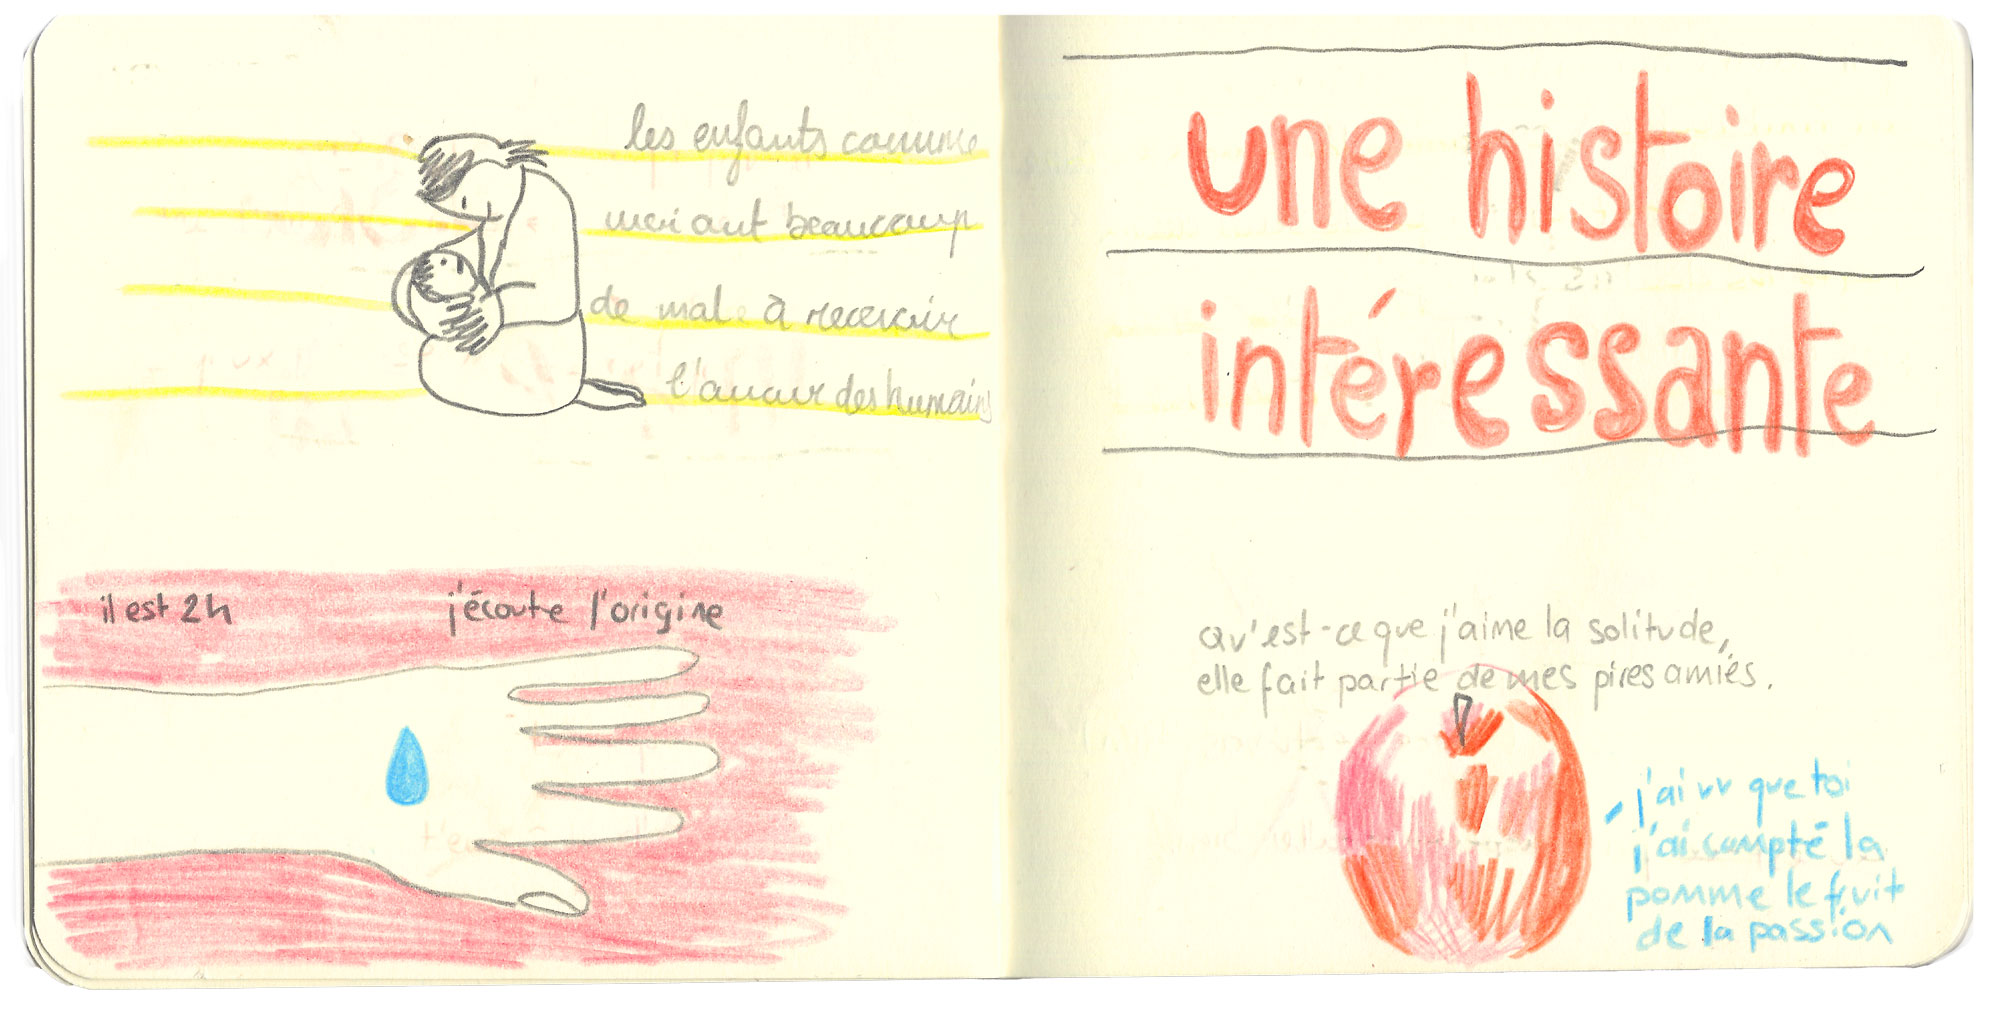 les enfants comme
moi ont beaucoup
de mal à recevoir
l'amour des humains
il est 2h
j'écoute l'origine
une histoire
intéressante
qu'est-ce que j'aime la solitude,
elle fait partie de mes pires amiés.
j'ai vu que toi
j'ai compté la
pomme le fruit
de la passion